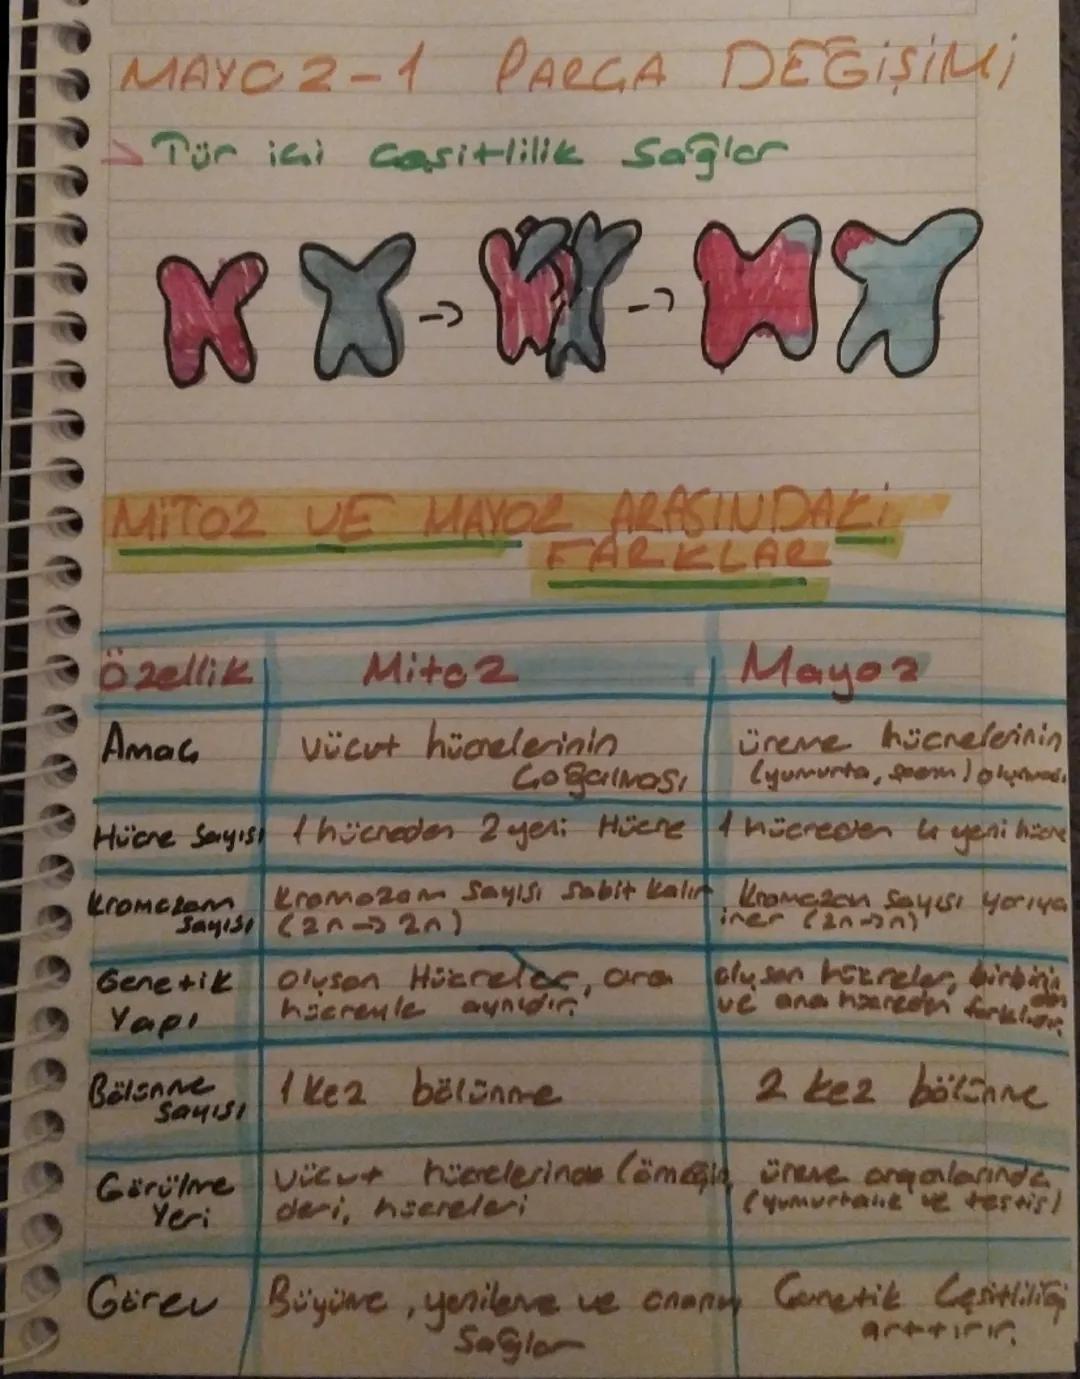 MAYOZ-1 PARÇA DEĞİŞİMİ
→ Tür içi çaşitlilik Sağlar
→ →
MİTOZ VE MAYOZ ARASINDAKİ
FARKLAR
Özellik Mitoz Mayoz
Amaç vücut hücrelerinin üreme hücrelerinin
Çoğalması (yumurta, sperm) oluşması
Hücre Sayısı 1 hücreden 2 yeni Hücre 1 hücreden 4 yeni hücre
Kromozom Kromozom Sayısı Sabit kalır Kromozom Sayısı yarıya
Sayısı (2n→2n) iner (2n→n)
Genetik oluşan Hücreler, ana oluşan hücreler, birbirin
den
Yapı hücreyle aynıdır. ve ana hücreden farklıdır.
Bölünme 1 kez bölünme 2 kez bölünme
Sayısı
Görülme vücut hücrelerinde (örneğin, üreme organlarında
Yeri deri, hücreleri (yumurtalık ve testis)
Görev Büyüme, yenilenme ve onarım Genetik Çeşitliliği
Sağlar arttırır.